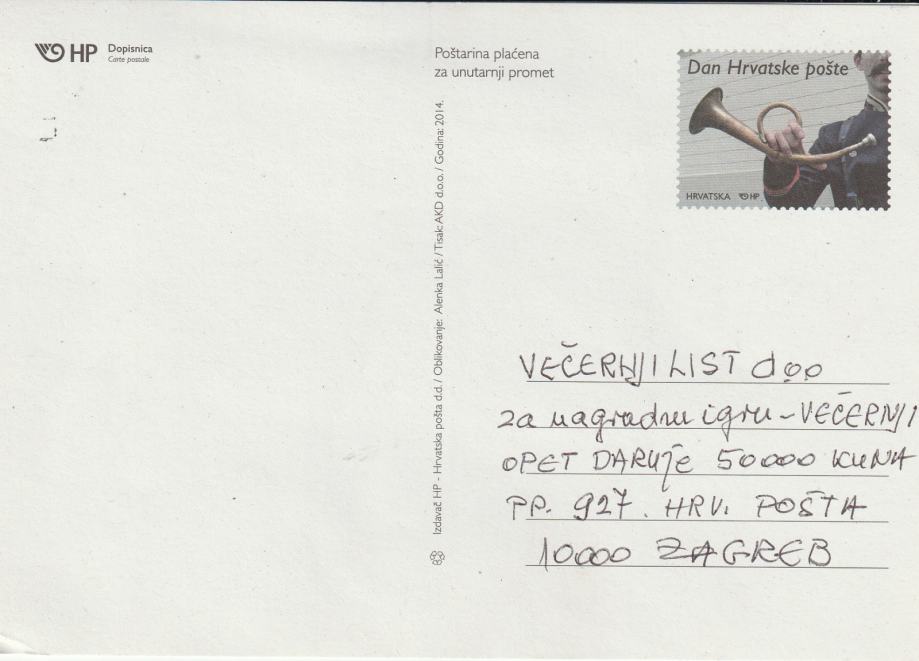 HP Dopisnica
Carte postale
Poštarina plaćena
za unutarnji promet
Dan Hrvatske pošte
HRVATSKA HP
Izdavač HP - Hrvatska pošta d.d. / Oblikovanje: Alenka Lalić / Tisak: AKD d.o.o. / Godina: 2014.
VEČERNJI LIST doo
za nagradnu igru - VEČERNJI
OPET DARUJe 50000 KUNA
PP. 927. HRV. POŠTA
10000 ZAGREB